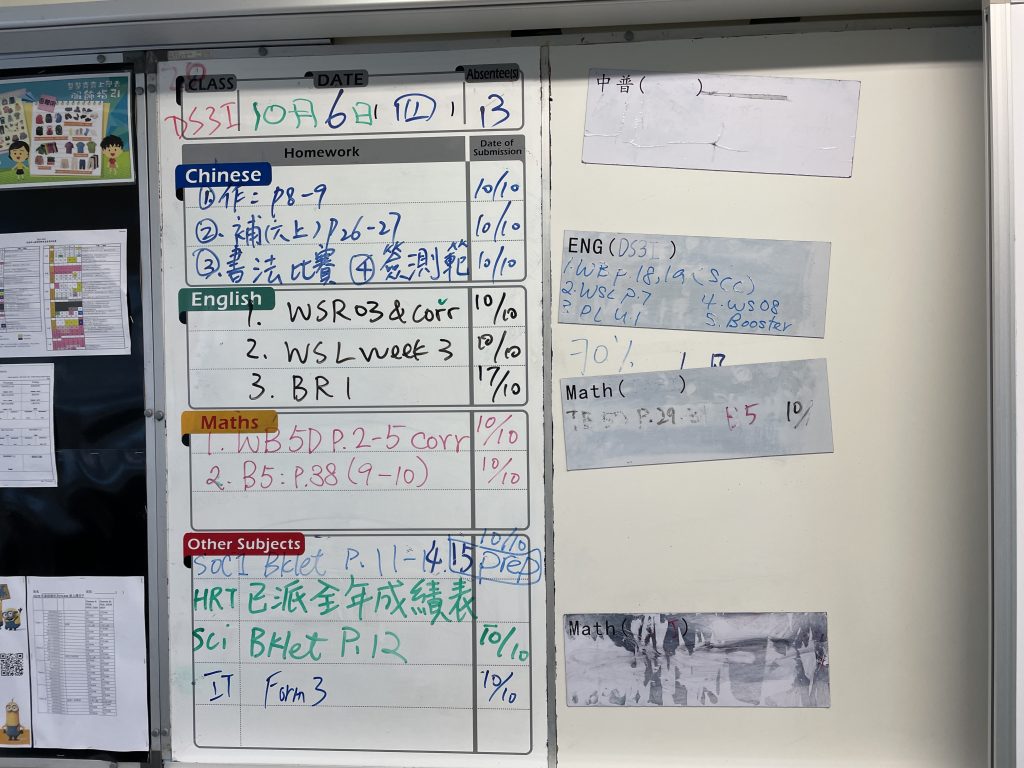 CLASS DATE Absentee(s)
DS3I 10月6日(四) 13
Homework Date of Submission
Chinese
①作: P8-9 10/10
②. 補(六上)P26-27 10/10
③.書法比賽 ④簽測範 10/10
English
1. WSR03 & corr 10/10
2. WSL week 3 10/10
3. BR1 17/10
Maths
1. WB 5D P.2-5 corr 10/10
2. B5: P.38 (9-10) 10/10
Other Subjects
10/10
SOCI Bklet P. 11-14. 15 prep
HRT 已派全年成績表
Sci Bklet P.12 10/10
IT Form 3 10/10
中普( )
ENG(DS3I)
1. WB P 18,19 (SCC)
2. WSL P.7 4. WS08
PLU1 5. Booster
70%
Math( )
P.29- B5 10/
Math( )